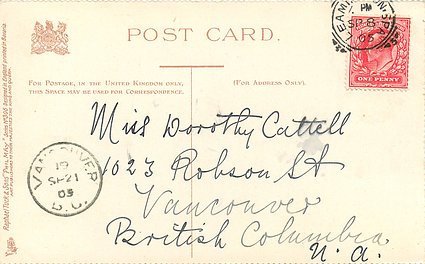 POST CARD.
FOR POSTAGE, IN THE UNITED KINGDOM ONLY,
THIS SPACE MAY BE USED FOR CORRESPONDENCE.
(FOR ADDRESS ONLY).
PM
SP 8
05
ONE PENNY
Miss Dorothy Cattell
1023 Robson St
Vancouver
British Columbia
N. A.
VANCOUVER
19
SP 21
05
B.C.